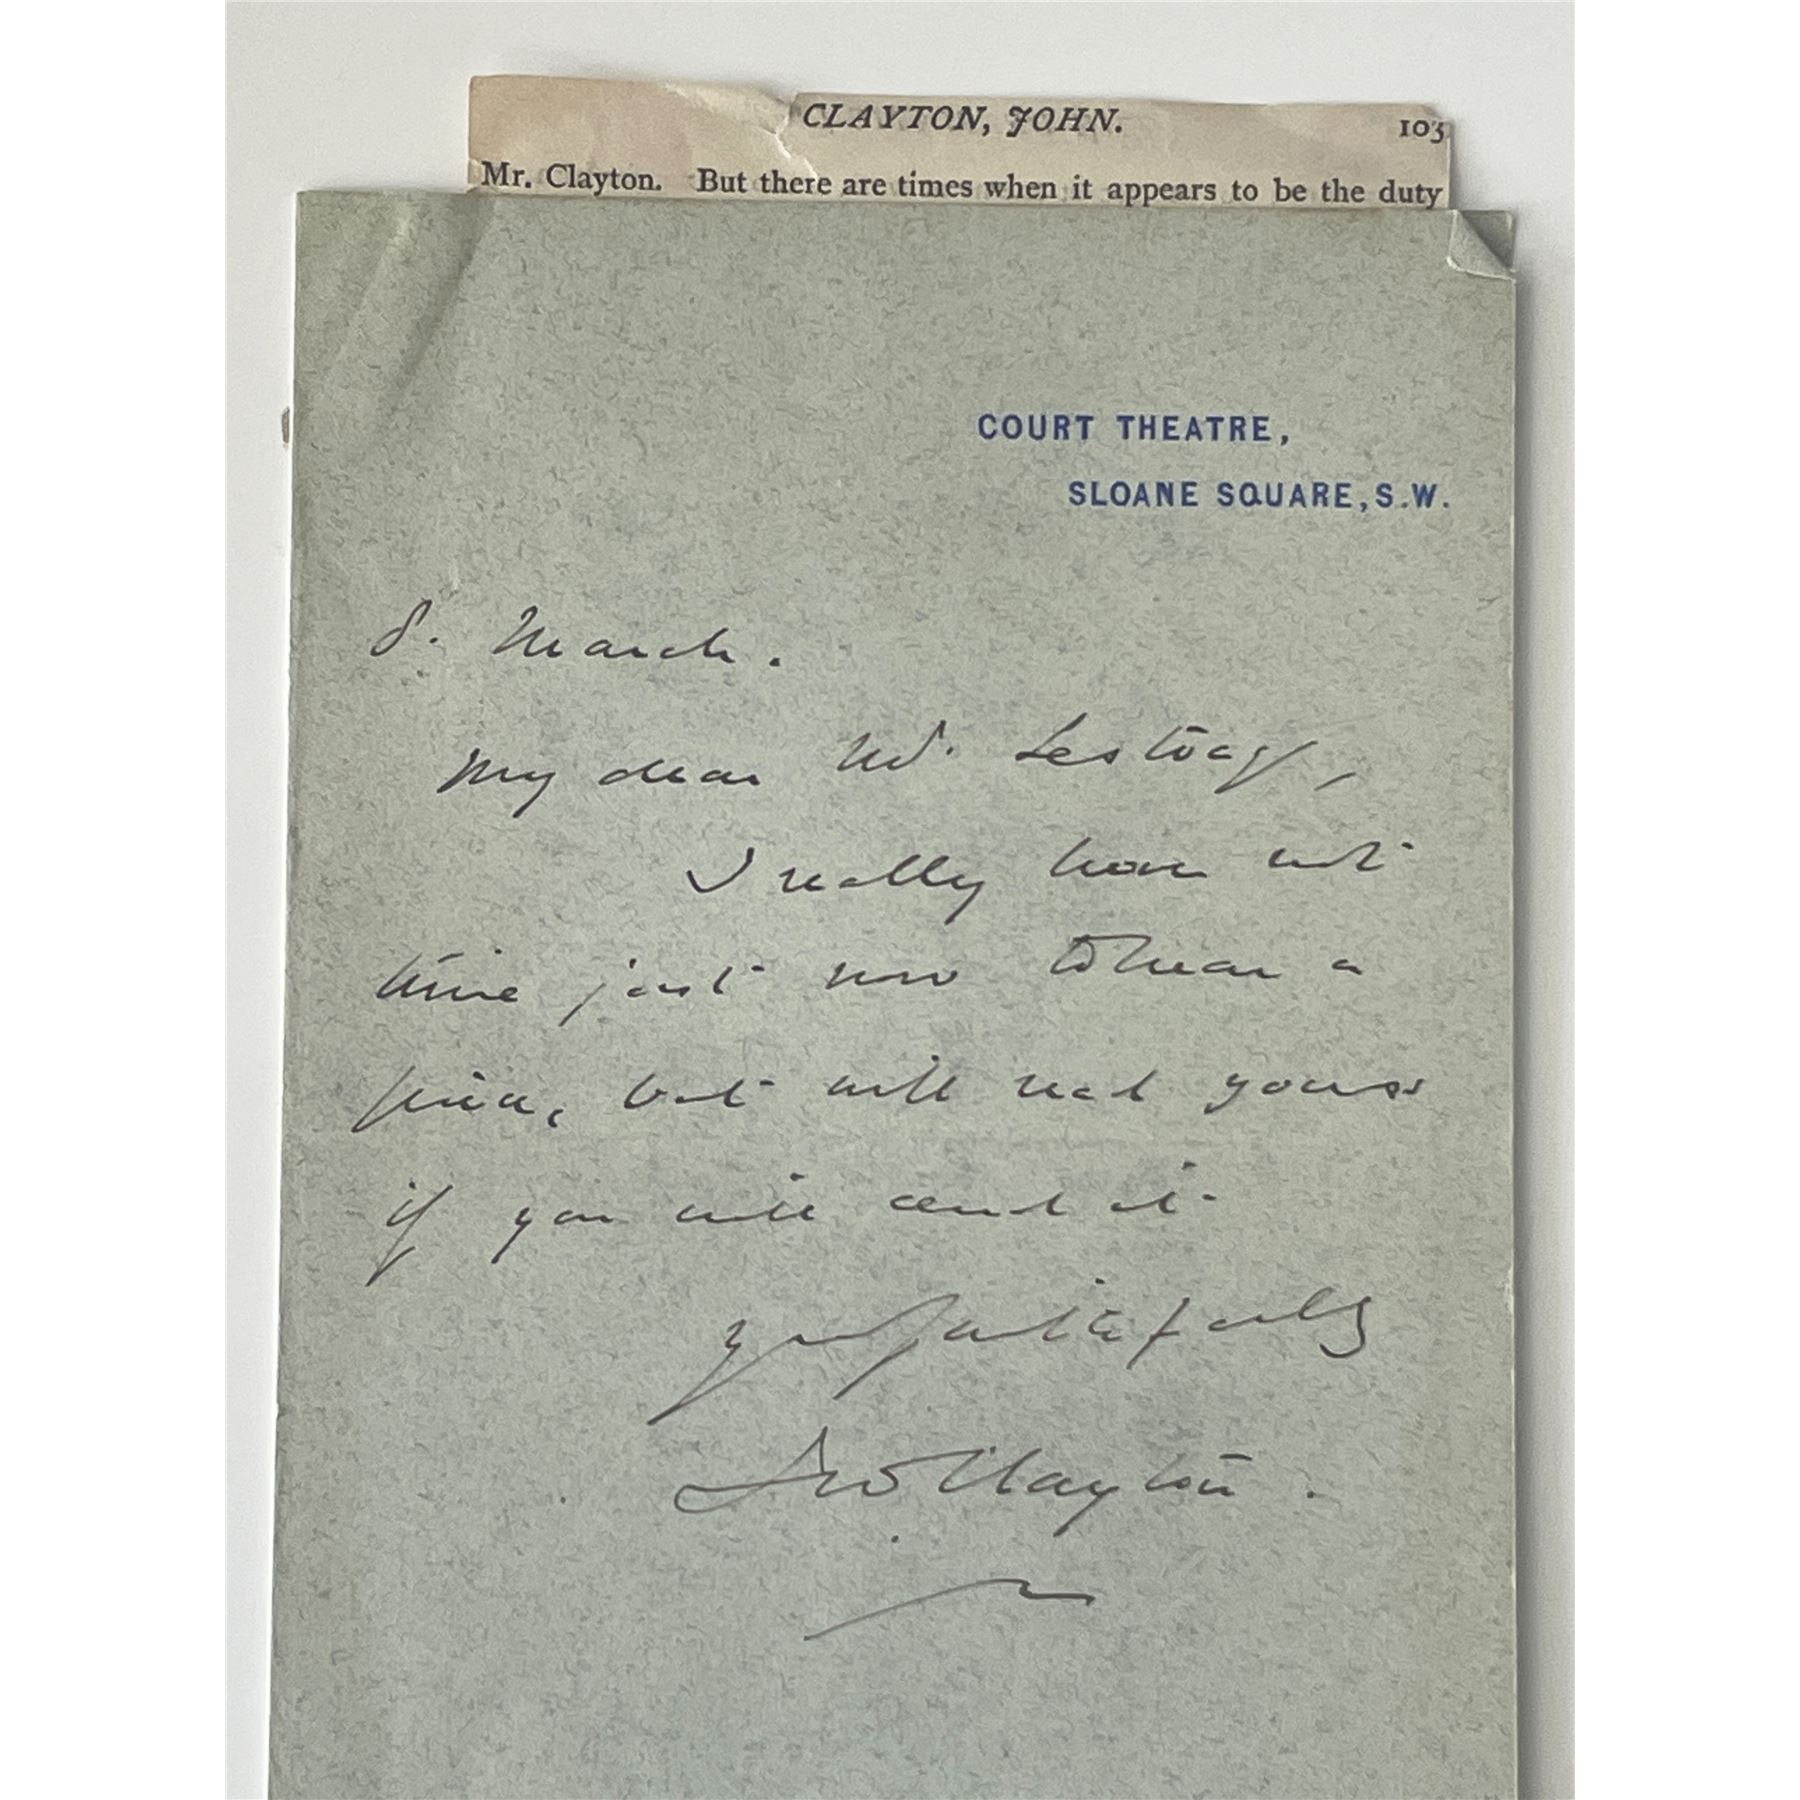 CLAYTON, JOHN. 103
Mr. Clayton. But there are times when it appears to be the duty
COURT THEATRE,
SLOANE SQUARE, S.W.
8. March.
My dear
I really have not
time just now to hear a
piece, but will read yours
if you will send it
yrs faithfully
Jno Clayton.